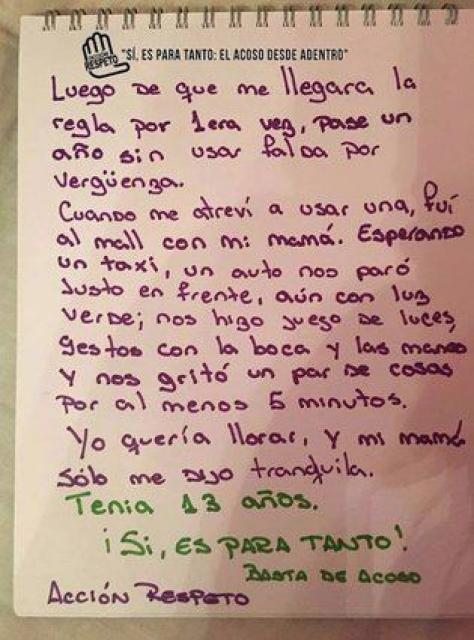 RESPETO "SÍ, ES PARA TANTO: EL ACOSO DESDE ADENTRO"
Luego de que me llegara la
regla por 1era vez, pase un
año sin usar falda por
vergüenza.
Cuando me atreví a usar una, fuí
al mall con mi mamá. Esperando
un taxi, un auto nos paró
justo en frente, aún con luz
verde; nos hizo juego de luces,
gestos con la boca y las manos
y nos gritó un par de cosas
por al menos 5 minutos.
Yo quería llorar, y mi mamá
sólo me dijo tranquila.
Tenia 13 años.
¡Si, ES PARA TANTO!
BASTA DE ACOSO
ACCIÓN RESPETO